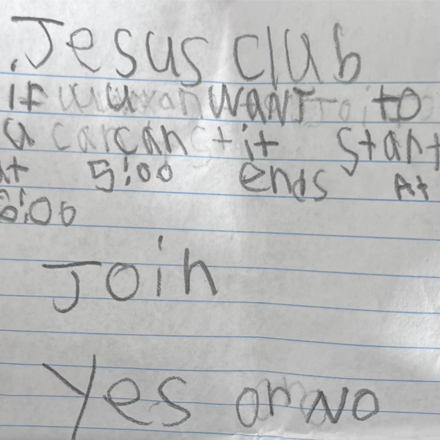 Jesus club
if u want to
u can it start
At 5:00 ends At
6:00
Join
Yes or No